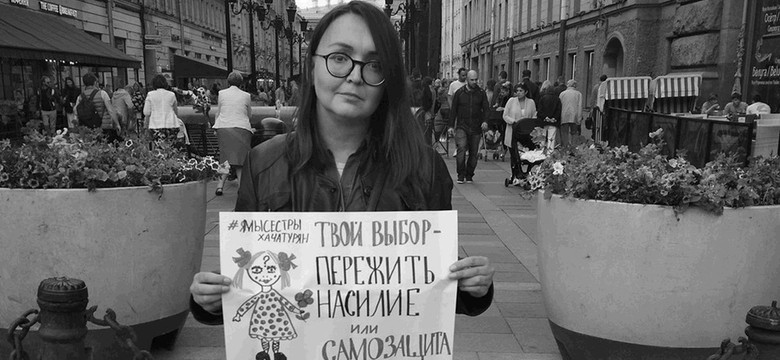 THE COFFEE
#ЯМЫСЕСТРЫ
ХАЧАТУРЯН
ТВОЙ ВЫБОР-
ПЕРЕЖИТЬ
НАСИЛИЕ
ИЛИ
САМОЗАЩИТА